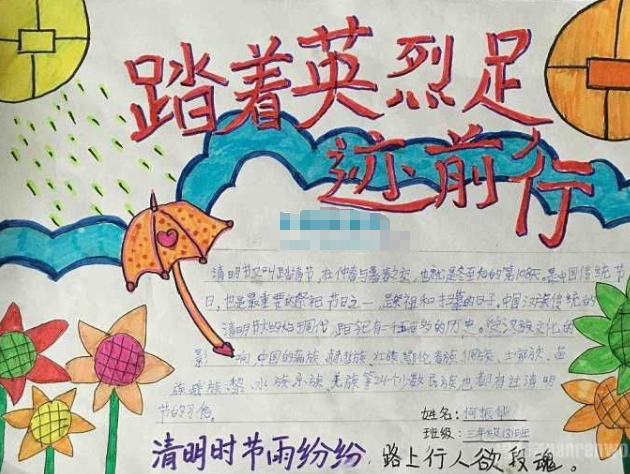 踏着英烈足
迹前行
清明节又叫踏青节,在仲春与暮春之交,也就是冬至后的第108天。是中国传统节
日,也是最重要的祭祀节日之一,是祭祖和扫墓的日子。中国汉族传统的
清明节大约始于周代,距今已有二千五百多年的历史。受汉族文化的
影响,中国的满族、赫哲族、壮族、鄂伦春族、侗族、土家族、苗
族、瑶族、黎、水族、京族、羌族等24个少数民族也都有过清明
节的习俗。
姓名:何振华
班级:三年级(3)班
清明时节雨纷纷,路上行人欲段魂